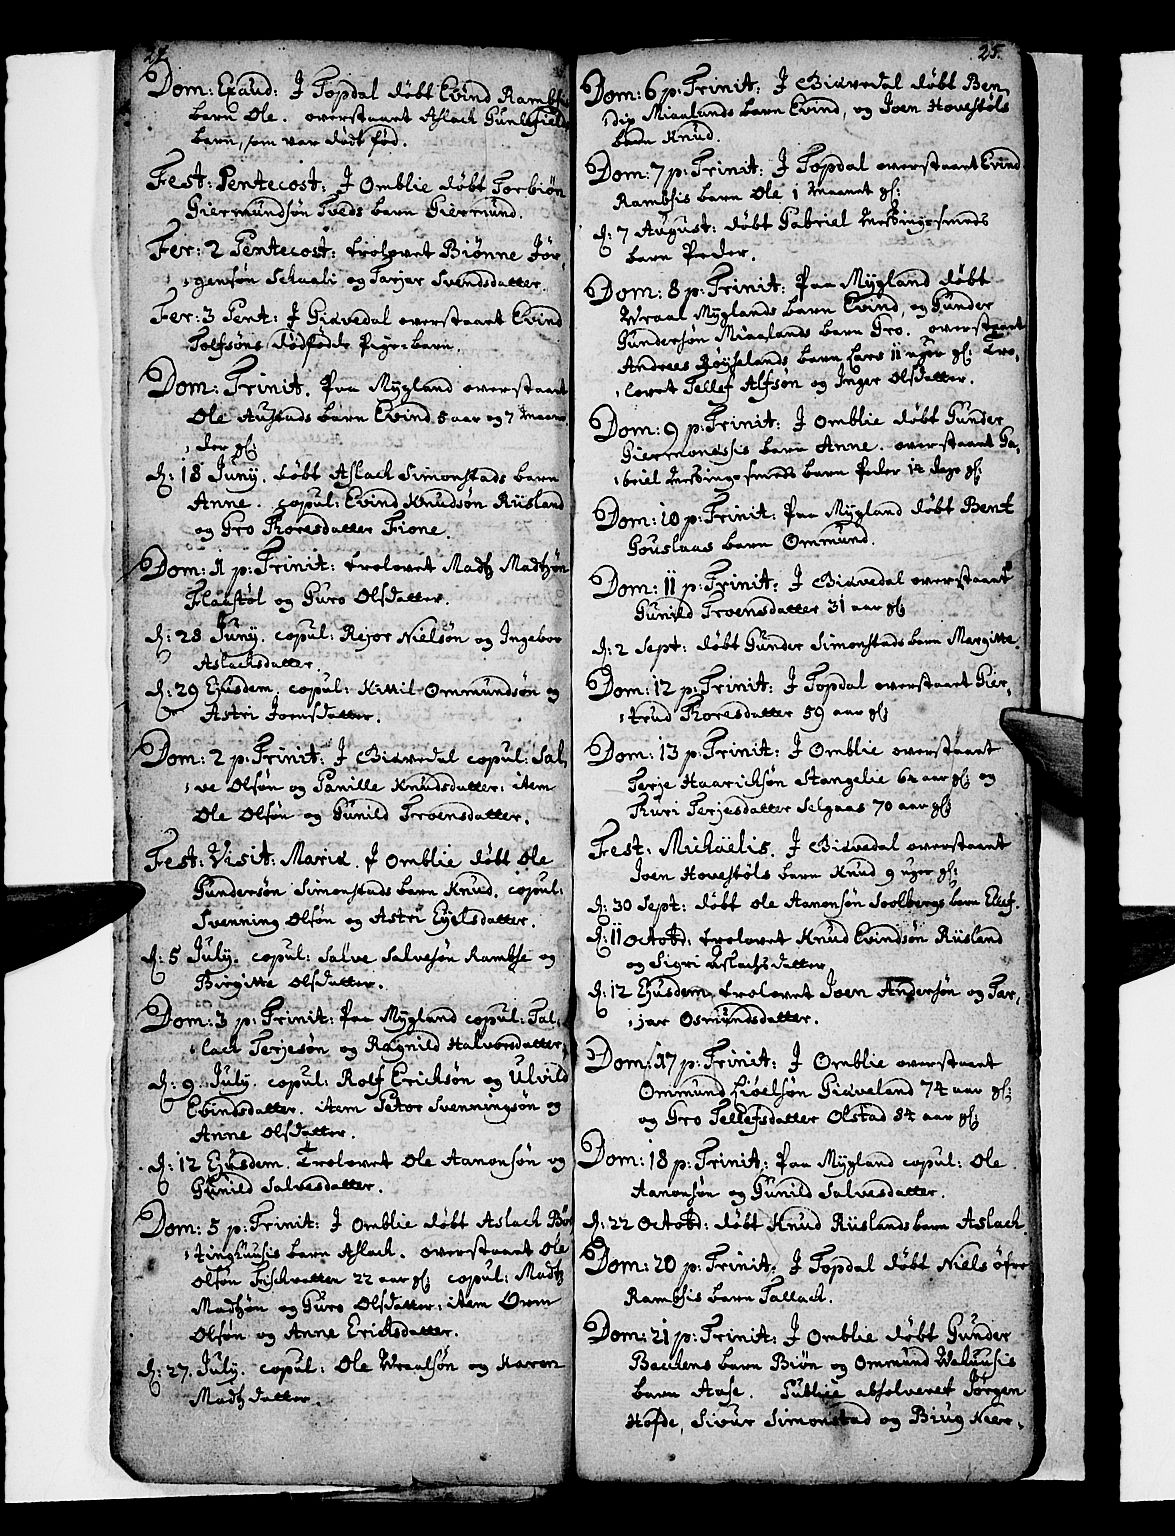 24.
Dom: Exaud: J Topdal døbt Evind Rambsis
barn Ole. overstaaet Aslach
barn, som var dødt fød.
Fest: Pentecost: J Omblie døbt Torbiøn
Giermundsøn Tveds barn Giermund.
Fer: 2 Pentecost: trolovet Biønne Jør-
gensøn Schaali og Tarjer Svendsdatter.
Fer: 3 Pent: J Giøvedal overstaaet Evind
Tolfsøns dødfødde Pige-barn.
Dom: Trinit. Paa Mygland overstaaet
Ole barn Evind 5 aar og 7 maane-
der gl:
d: 18 Junij. døbt Aslach Simonstads barn
Anne. copul: Evind Knudsøn Riisland
og Gro Toresdatter Fione.
Dom: 1 p: Trinit: trolovet Madtz Madtzøn
Flaastøl og Guro Olsdatter.
d: 28 Junij. copul: Rejor Nielsøn og Ingebor
Aslachsdatter.
d: 29 Ejusdem. copul: Kittil Ommundsøn og
Astri Joensdatter.
Dom: 2 p: Trinit: J Giøvedal copul: Sal-
ve Olsøn og Panille Knudsdatter: item
Ole Olsøn og Gunild Troensdatter.
Fest: Visit: Mariæ. J Omblie døbt Ole
Gundersøn Simonstads barn Knud. copul:
Svenning Olsøn og Astri Eyelsdatter.
d: 5 July. copul: Salve Salvesøn Rambse og
Birgitte Olsdatter.
Dom: 3 p: Trinit: Paa Mygland copul: Tal-
lach Terjesøn og Ragnild Halvorsdatter.
d: 9 July. copul: Rolf Ericksøn og Ulvild
Evindsdatter. item Petor Svenningsøn og
Anne Olsdatter.
d: 12 Ejusdem. Trolovet Ole Aanonsøn og
Gunild Salvesdatter.
Dom: 5 p: Trinit: J Omblie døbt Aslach
barn Aslach. overstaaet Ole
Olsøn Fischvatten 22 aar gl: copul: Madtz
Madtzøn og Guro Olsdatter: item Orm
Olsøn og Anne Ericksdatter.
d: 27. July. copul: Ole Wraalsøn og Karen
Madtzdatter.
25.
Dom: 6 p: Trinit: J Giøvedal døbt Ben-
dix Miaalands barn Evind, og Joen Hovestøls
barn Knud.
Dom: 7 p: Trinit: J Topdal overstaaet Evind
Rambsis barn Ole 1 maanet gl:
d: 7 August: døbt Gabriel Messing-smeds
barn Peder.
Dom: 8 p: Trinit: Paa Mygland døbt
Wraal Myglands barn Evind, og Gunder
Gundersøn Miaalands barn Gro. overstaaet
Andreas Røyselands barn Lars 11 uger gl: Tro-
lovet Tellef Alfsøn og Inger Olsdatter.
Dom: 9 p: Trinit: J Omblie døbt Gunder
barn Anne. overstaaet Ga-
briel Messing-smeds barn Peder 14 dage gl:
Dom: 10 p: Trinit: Paa Mygland døbt Bent
Gouslaas barn Ommund.
Dom: 11 p: Trinit: J Giøvedal overstaaet
Gunild Troensdatter 31 aar gl:
d: 2 Sept: døbt Gunder Simonstads barn Margitte.
Dom: 12 p: Trinit: J Topdal overstaaet Gier-
trud Toresdatter 59 aar gl:
Dom: 13 p: Trinit: J Omblie overstaaet
Terje Haarichsøn Stangelie 62 aar gl: og
Turi Terjesdatter Selgaas 70 aar gl:
Fest: Michaëlis. J Giøvedal overstaaet
Joen Hovestøls barn Knud 9 uger gl:
d: 30 Sept: døbt Ole Aanonsøn Soolbergs barn Ellef.
d: 11 Octobr: trolovet Knud Evindsøn Riisland
og Sigri Aslachsdatter
d: 12 Ejusdem trolovet Joen Andersøn og Tar-
jær Osmundsdatter.
Dom: 17 p: Trinit: J Omblie overstaaet
Ommund Liøelsøn Giøveland 74 aar gl:
og Gro Tellefsdatter Olstad 84 aar gl:
Dom: 18 p: Trinit: Paa Mygland copul: Ole
Aanonsøn og Gunild Salvesdatter.
d: 22 Octobr: døbt Knud Riislands barn Aslach.
Dom: 20 p: Trinit: J Topdal døbt Niels Øfre
Rambsis barn Tallach.
Dom: 21 p: Trinit: J Omblie døbt Gunder
Bachens barn Biøn og Ommund
barn Aase. Publicè absolveret Jørgen
Hofde, Sivur Simonstad og Biug Neer-